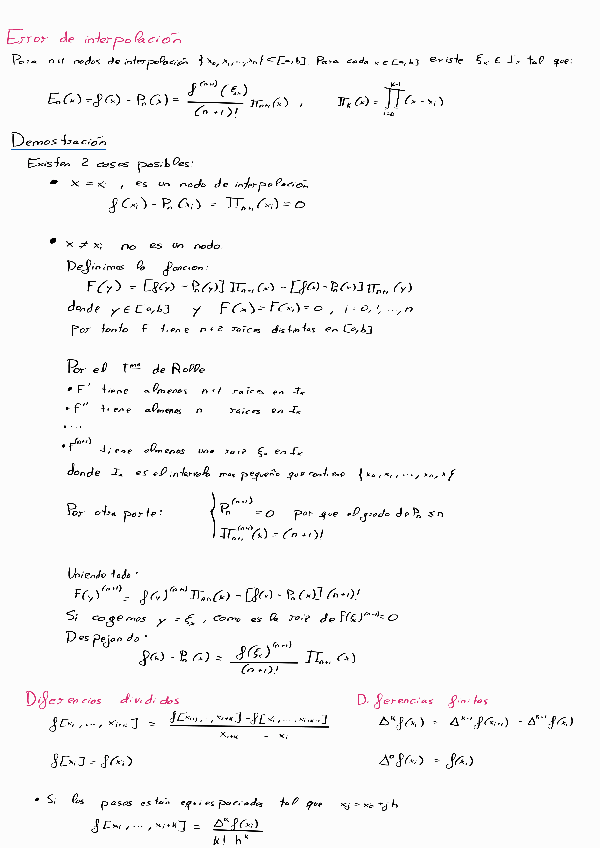 Error de interpolación
Para n+1 nodos de interpolación {x₀, x₁, ..., xₙ} ⊂ [a,b] Para cada x ∈ [a,b] existe ξₓ ∈ Iₓ tal que:
Eₙ(x) = f(x) - Pₙ(x) = f⁽ⁿ⁺¹⁾(ξₓ) / (n+1)! Πₙ₊₁(x) , Πₖ(x) = ∏_{i=0}^{k-1} (x - xᵢ)
Demostración
Existen 2 casos posibles:
• x = xᵢ , es un nodo de interpolación
f(xᵢ) - Pₙ(xᵢ) = Πₙ₊₁(xᵢ) = 0
• x ≠ xᵢ no es un nodo
Definimos la función:
F(y) = [f(y) - Pₙ(y)] Πₙ₊₁(x) - [f(x) - Pₙ(x)] Πₙ₊₁(y)
donde y ∈ [a,b] y F(x) = F(xᵢ) = 0 , i = 0, 1, ..., n
por tanto F tiene n+2 raices distintas en [a,b]
Por el Tᵐᵃ de Rolle
• F' tiene almenos n+1 raices en Iₓ
• F'' tiene almenos n raices en Iₓ
• ...
• F⁽ⁿ⁺¹⁾ tiene almenos una raiz ξₓ en Iₓ
donde Iₓ es el intervalo mas pequeño que contiene {x₀, x₁, ..., xₙ, x}
Por otra parte: { Pₙ⁽ⁿ⁺¹⁾ = 0 por que el grado de Pₙ ≤ n
Πₙ₊₁⁽ⁿ⁺¹⁾(x) = (n+1)!
Uniendo todo:
F(y)⁽ⁿ⁺¹⁾ = f(y)⁽ⁿ⁺¹⁾ Πₙ₊₁(x) - [f(x) - Pₙ(x)] (n+1)!
Si cogemos y = ξₓ , como es la raiz de F(ξₓ)⁽ⁿ⁺¹⁾ = 0
Despejando:
f(x) - Pₙ(x) = f(ξₓ)⁽ⁿ⁺¹⁾ / (n+1)! Πₙ₊₁(x)
Diferencias divididas
f[xᵢ, ..., xᵢ₊ₖ] = f[xᵢ₊₁, ., xᵢ₊ₖ] - f[xᵢ, ..., xᵢ₊ₖ₋₁] / xᵢ₊ₖ - xᵢ
f[xᵢ] = f(xᵢ)
Diferencias finitas
Δᵏf(xᵢ) = Δᵏ⁻¹f(xᵢ₊₁) - Δᵏ⁻¹f(xᵢ)
Δ⁰f(xᵢ) = f(xᵢ)
• Si los pasos están equiespaciados tal que xⱼ = x₀ + jh
f[xᵢ, ..., xᵢ₊ₖ] = Δᵏf(xᵢ) / k! hᵏ